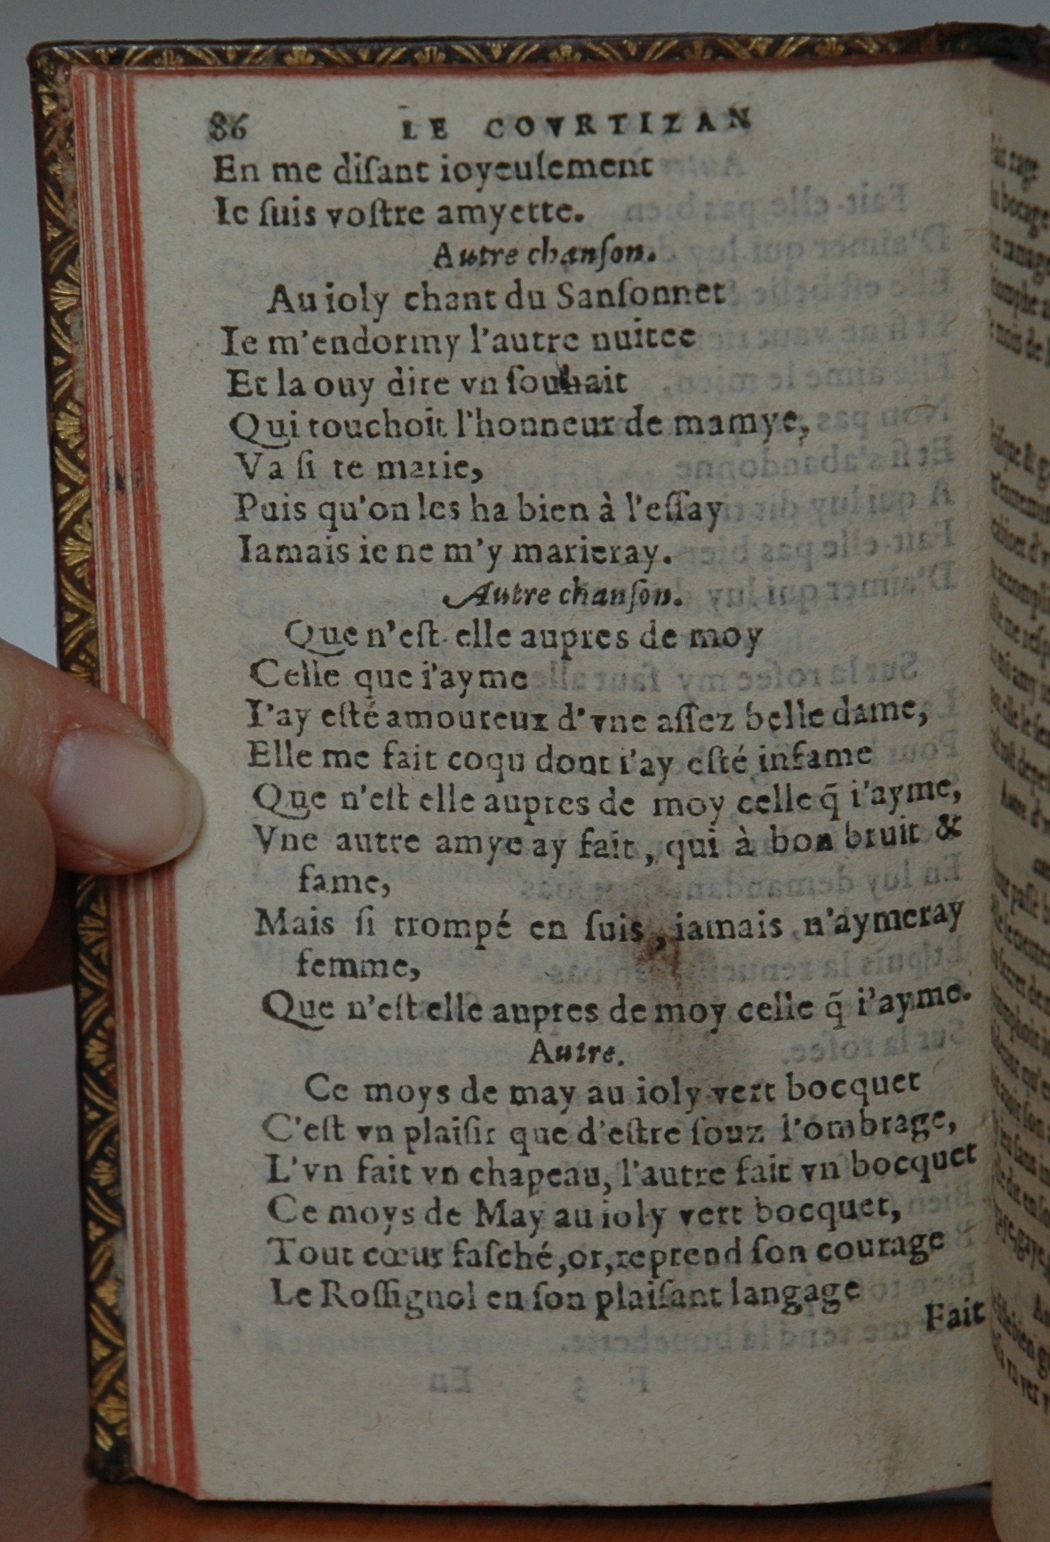 86 LE COVRTIZAN
En me diſant ioyeuſement
Ie ſuis voſtre amyette.
Autre chanſon.
Au ioly chant du Sanſonnet
Ie m'endormy l'autre nuitee
Et la ouy dire vn ſouhait
Qui touchoit l'honneur de mamye,
Va ſi te marie,
Puis qu'on les ha bien à l'eſſay
Iamais ie ne m'y marieray.
Autre chanſon.
Que n'eſt elle aupres de moy
Celle que i'ayme
I'ay eſté amoureux d'vne aſſez belle dame,
Elle me fait coqu dont i'ay eſté infame
Que n'eſt elle aupres de moy celle q̃ i'ayme,
Vne autre amye ay fait, qui à bon bruit &
fame,
Mais ſi trompé en ſuis, iamais n'aymeray
femme,
Que n'eſt elle aupres de moy celle q̃ i'ayme.
Autre.
Ce moys de may au ioly vert bocquet
C'eſt vn plaiſir que d'eſtre ſouz l'ombrage,
L'vn fait vn chapeau, l'autre fait vn bocquet
Ce moys de May au ioly vert bocquet,
Tout cœur faſché, or, reprend ſon courage
Le Roſſignol en ſon plaiſant langage
Fait